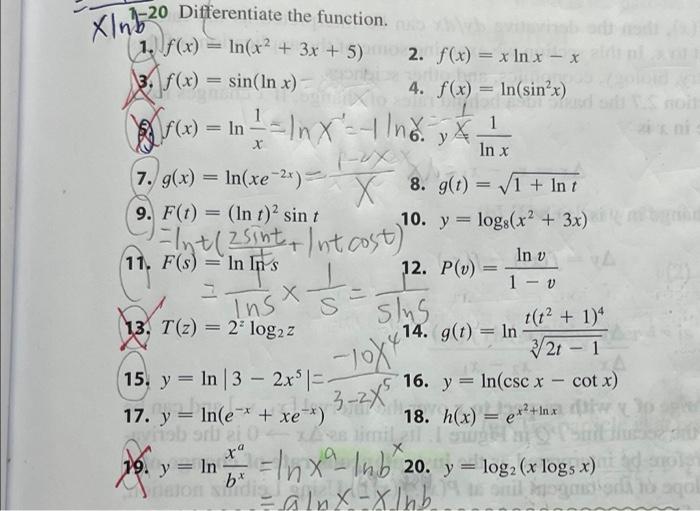 x ln b
1–20 Differentiate the function.
1. f(x) = ln(x² + 3x + 5)
2. f(x) = x ln x − x
3. f(x) = sin(ln x)
4. f(x) = ln(sin²x)
5. f(x) = ln 1/x = ln x⁻¹ = -1 ln x = -1/x
6. y = 1/ln x
7. g(x) = ln(xe⁻²ˣ) = 1-2x/x
8. g(t) = √(1 + ln t)
9. F(t) = (ln t)² sin t
= ln t (2 sin t/t + ln t cos t)
10. y = log₈(x² + 3x)
11. F(s) = ln ln s
= 1/ln s × 1/s = 1/s ln s
12. P(v) = ln v/1 − v
13. T(z) = 2ᶻ log₂ z
14. g(t) = ln t(t² + 1)⁴/∛(2t − 1)
15. y = ln | 3 − 2x⁵ | = -10x⁴/3-2x⁵
16. y = ln(csc x − cot x)
17. y = ln(e⁻ˣ + xe⁻ˣ)
18. h(x) = e^(x²+ln x)
19. y = ln xᵃ/bˣ = ln xᵃ - ln bˣ
= a ln x - x ln b
20. y = log₂(x log₅ x)